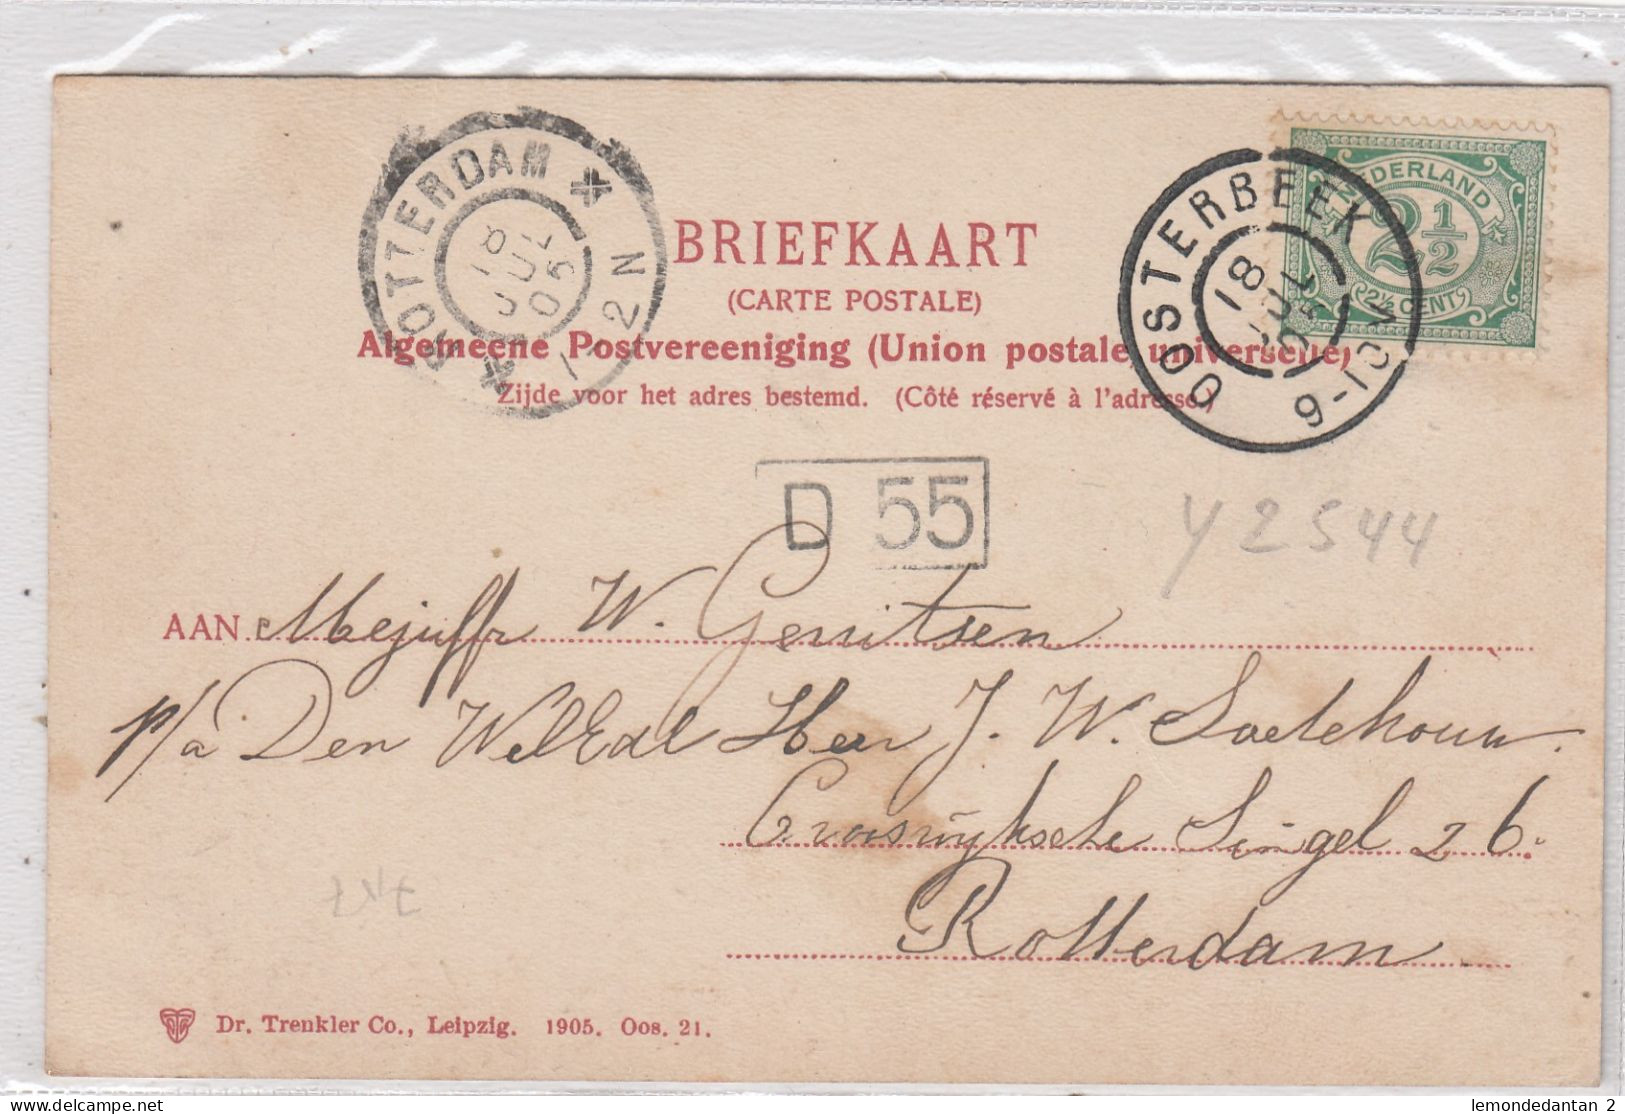 ROTTERDAM
18 JUL 05
1-2N
OOSTERBEEK
18 JUL 05
9-10V
NEDERLAND
2½
2½ CENT
BRIEFKAART
(CARTE POSTALE)
Algemeene Postvereeniging (Union postale universelle)
Zijde voor het adres bestemd. (Côté réservé à l'adresse.)
D 55
Y2544
AAN Mejuffr W. Gerritsen
p/a Den WelEdl Heer J. W.
Crooswijksche Singel 26.
Rotterdam
Dr. Trenkler Co., Leipzig. 1905. Oos. 21.
lemondedantan 2